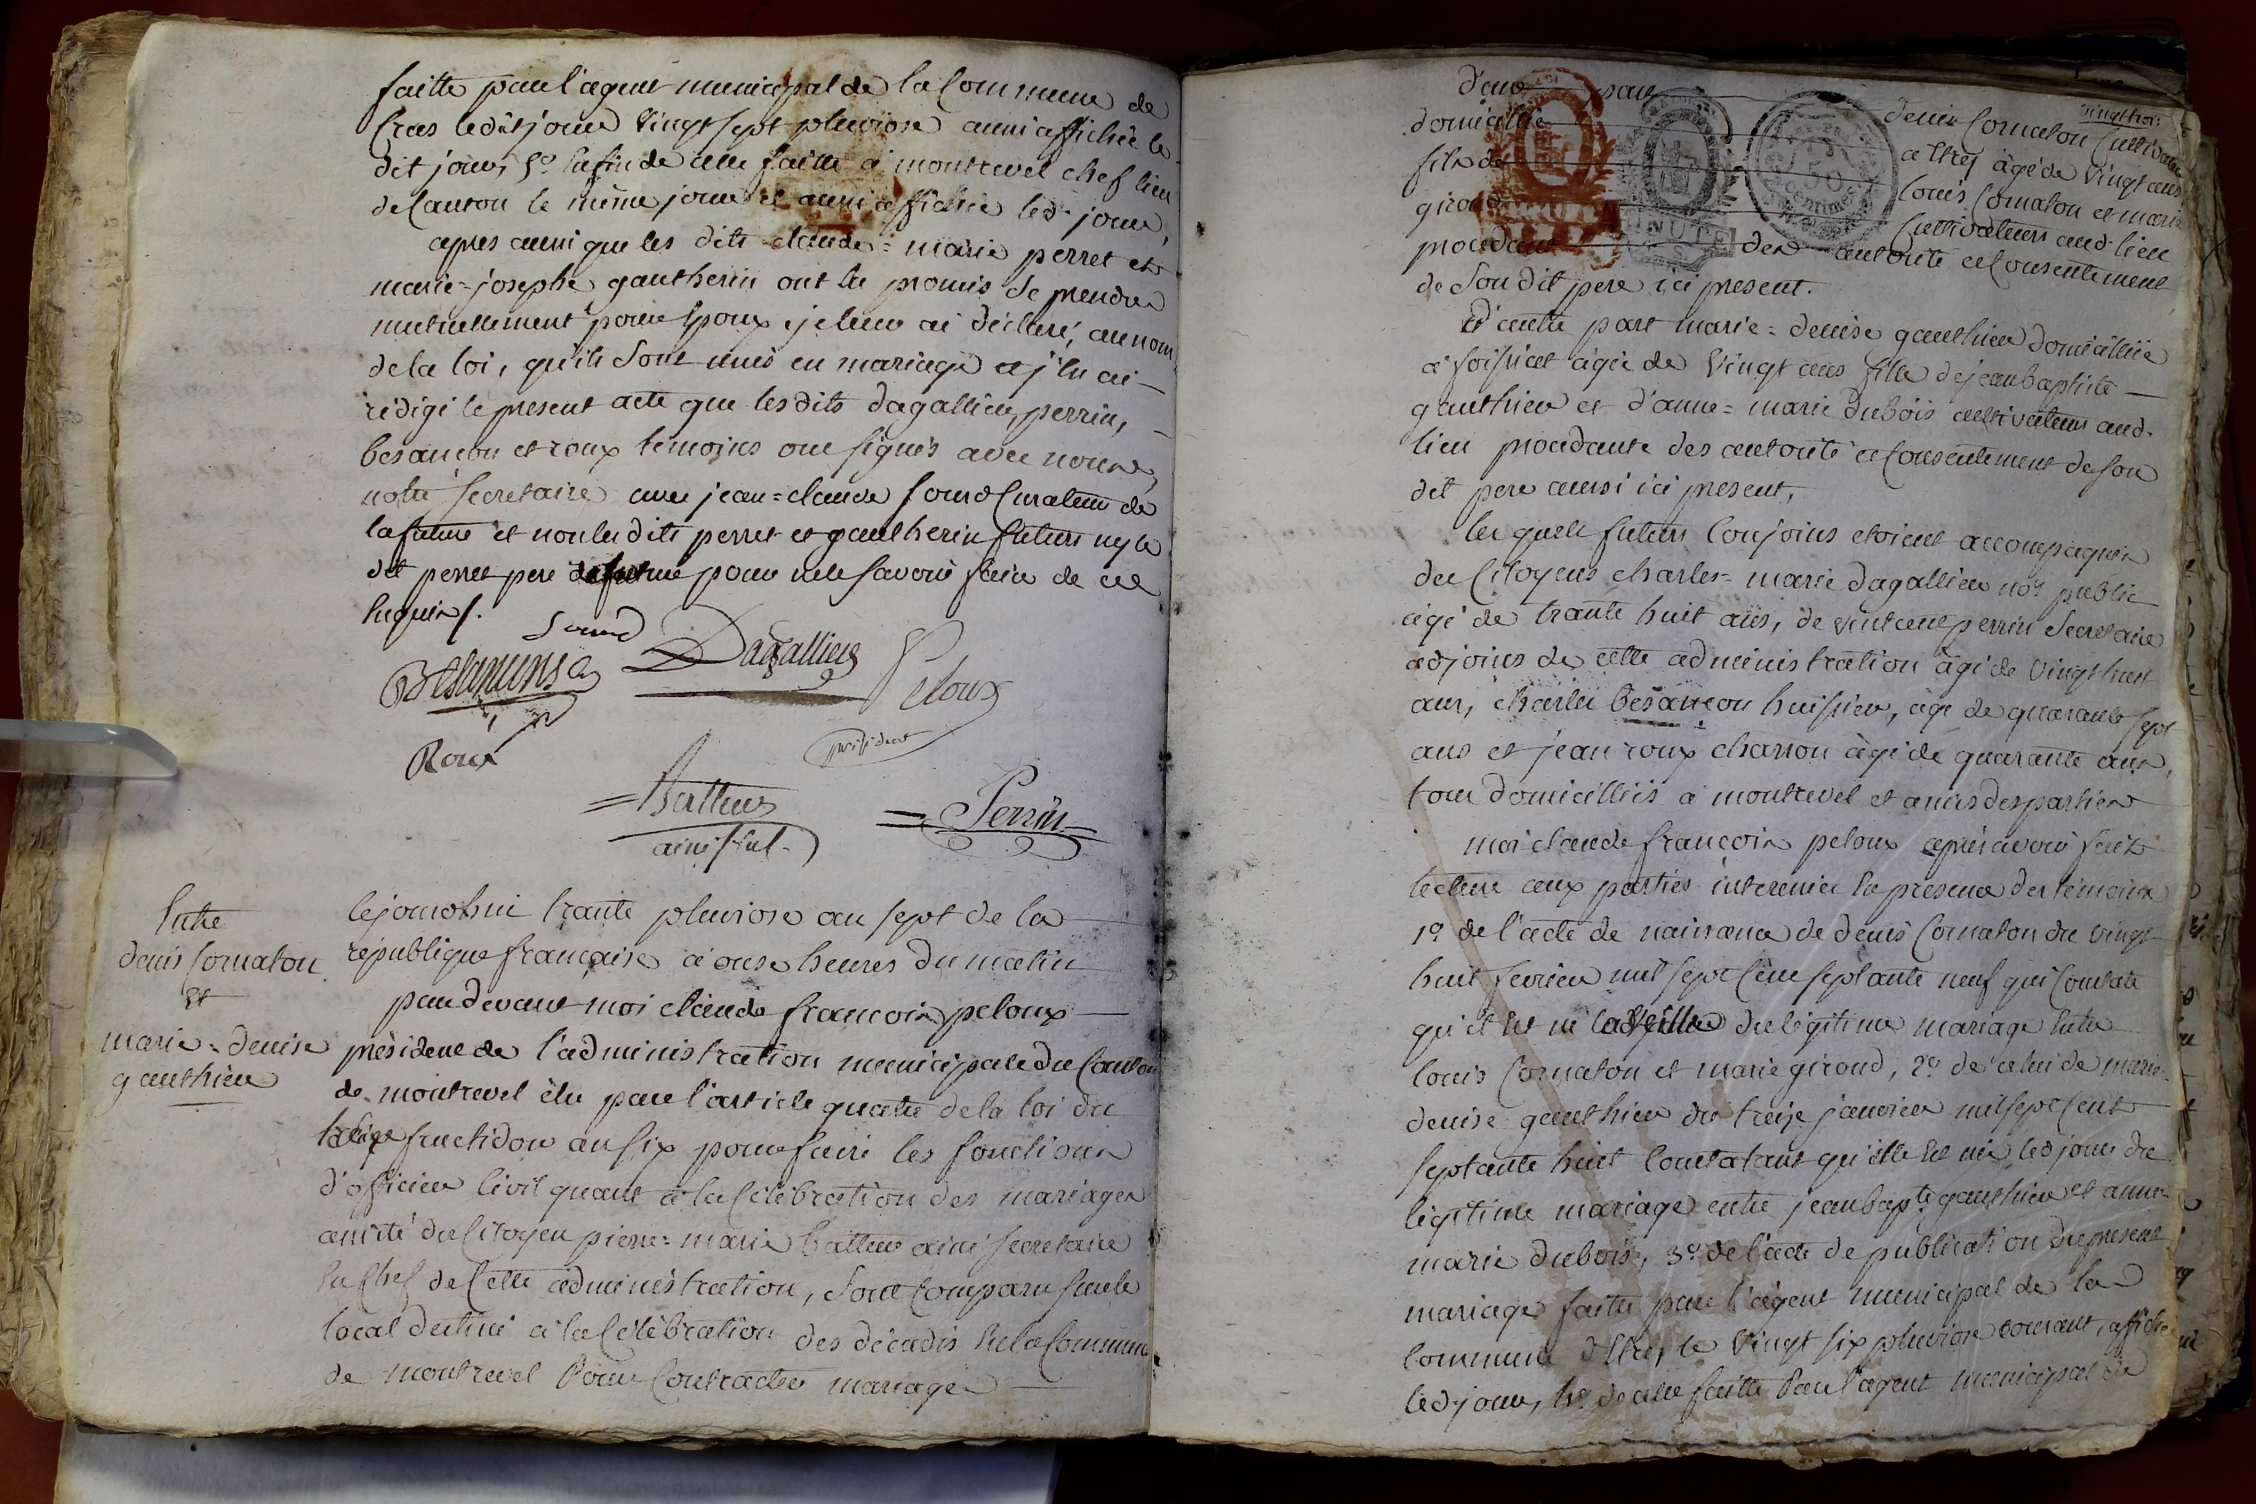 faitte par l'agent municipal de la Commune de
Cras ledit jour vingt sept pluviose aussi affichée le
dit jour, 5º enfin de celle faitte à montrevel chef lieu
de Canton le même jour et aussi affichée led. jour,
apres aussi que les dits claude=marie perret et
marie=josephe gautherin ont eu promis de prendre
mutuellement pour Epoux, je leur ai déclaré, au nom
de la loi, qu'ils sont unis en mariage et j'en ai
rédigé le present acte que lesdits dagallier, perrin,
besançon et roux temoins ont signés avec nous,
notre secretaire avec jean=claude sourd Curateur de
la future et non lesdits perret et gautherin futurs ny le
dit perret pere pour ne le savoir faire de ce
requis /.
Sourd
Besançon Dagallier Peloux
président
Roux
=Batteur =Perrin=
ainé
Entre
denis Cornaton
Et
marie=denise
gauthier
Cejourdhui trante pluviose an sept de la
republique française à onse heures du matin
par devant moi claude françois peloux
président de l'administration municipale du Canton
de montrevel élu par l'article quatre de la loi du
treize fructidor an six pour faire les fonctions
d'officier Civil quant à la Célébration des mariages
assisté du Citoyen pierre=marie batteur ainé secretaire
En Chef de Cette administration, Sont Comparu sur le
local destiné à la Célébration des décadis En la Commune
de montrevel Pour Contracter mariage
vingt trois
D'une part denis Cornaton Cultivateur
domicillié à Etrez âgé de vingt ans
fils de louis Cornaton et marie
giroud Cultivateurs aud. lieu
procedant des autorité et Consentement
de Son dit pere ici present.
D'autre part marie=denise gauthier domicilliée
à foissiat âgée de vingt ans fille de jean baptiste
gauthier et d'anne=marie dubois cultivateurs aud.
lieu procedante des autorité et Consentement de son
dit pere aussi ici present,
lesquels futurs Conjoins etoient accompagnés
des Citoyens charles=marie dagallier nor public
âgé de trante huit ans, de vincent perrin Secretaire
adjoins de cette administration âgé de vingt huit
ans, charles besançon huissier, âgé de quarante sept
ans et jean roux charron âgé de quarante ans,
tous domicilliés à montrevel et amis des parties
moi claude françois peloux après avoir fait
lecture aux parties interessées En presence des témoins
1º de l'acte de naissance de denis Cornaton du vingt
huit fevrier mil sept Cent septante neuf qui Constate
qu'il Est né la veille du legitime mariage Entre
louis Cornaton et marie giroud, 2º de celui de marie
denise gauthier du treize janvier mil sept Cent
septante huit Constatant qu'elle Est née led. jour du
legitime mariage entre jean bapte gauthier et anne
marie dubois, 3º de l'acte de publication du present
mariage faitte par l'agent municipal de la
Commune d'Etrez le vingt six pluviose courant, affichée
led. jour, 4º de celle faitte Par l'agent municipal de